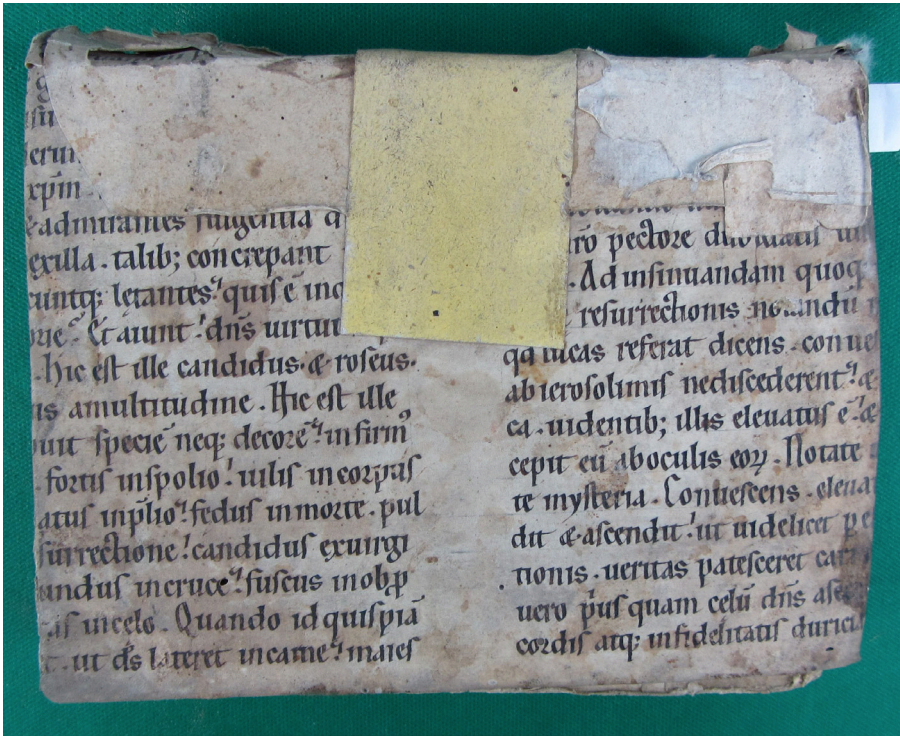 erun
xp̄m
&admirantes fulgentia q
exilla . talib; concrepant
cuntq; letantes. quis ē inq
orie. Et aiunt. dn̄s uirtut
. hic est ille candidus. & roseus.
is amultitudine . Hic est ille
uit speciē neq; decorē. infirm᷒
. fortis inspolio. uilis incorpus
atus inp̄lio. fedus inmorte . pul
surrectione. candidus exuirgi
undus incruce. fuscus inobꝓ
as incelo . Quando id quispiā
ut ds̄ lateret incarne. maies
r̄o pectore
. Ad insinuandam quoq;
resurrectionis notandū
qd lucas referat dicens . conue
ab ierosolimis nediscederent. &
ca . uidentib; illis eleuatus ē. &
cepit eū aboculis eoꝝ . Notate
te mysteria . Conuescens . eleua
dit & ascendit. ut uidelicet p e
tionis . ueritas patesceret car
uero p̄us quam celū dn̄s asc
cordis atq; infidelitatis durici